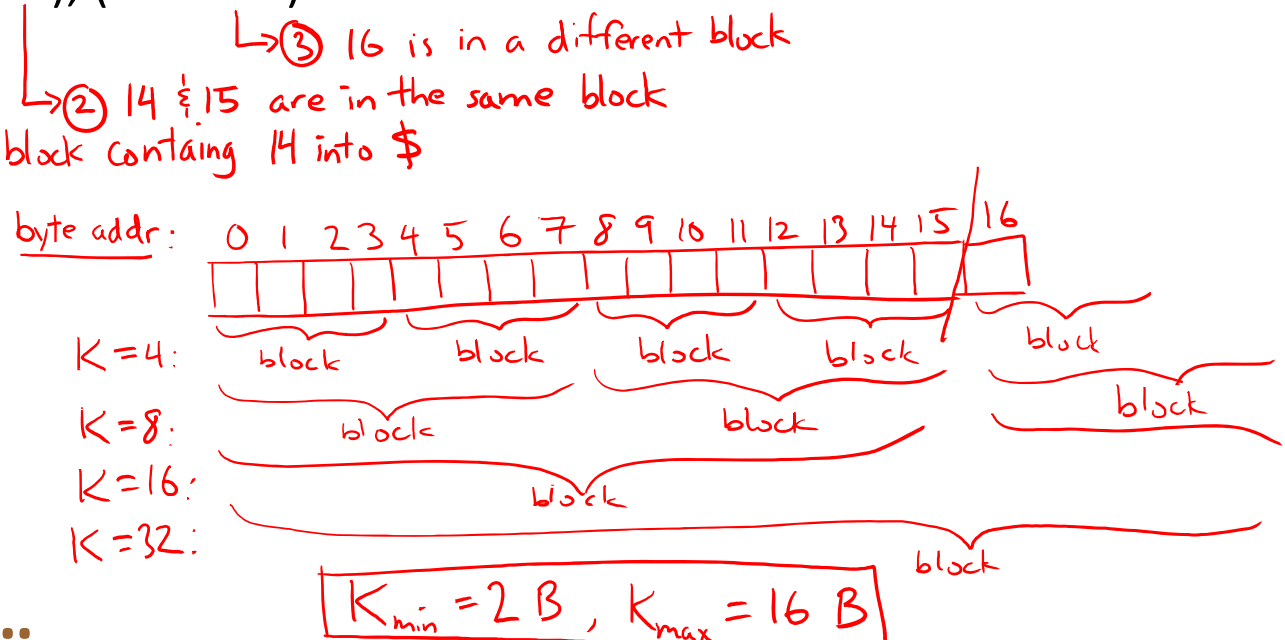 ③ 16 is in a different block
② 14 & 15 are in the same block
block containg 14 into $
byte addr: 0 1 2 3 4 5 6 7 8 9 10 11 12 13 14 15 16
K=4: block block block block block
K=8: block block block
K=16: block
K=32: block
K min = 2 B, K max = 16 B